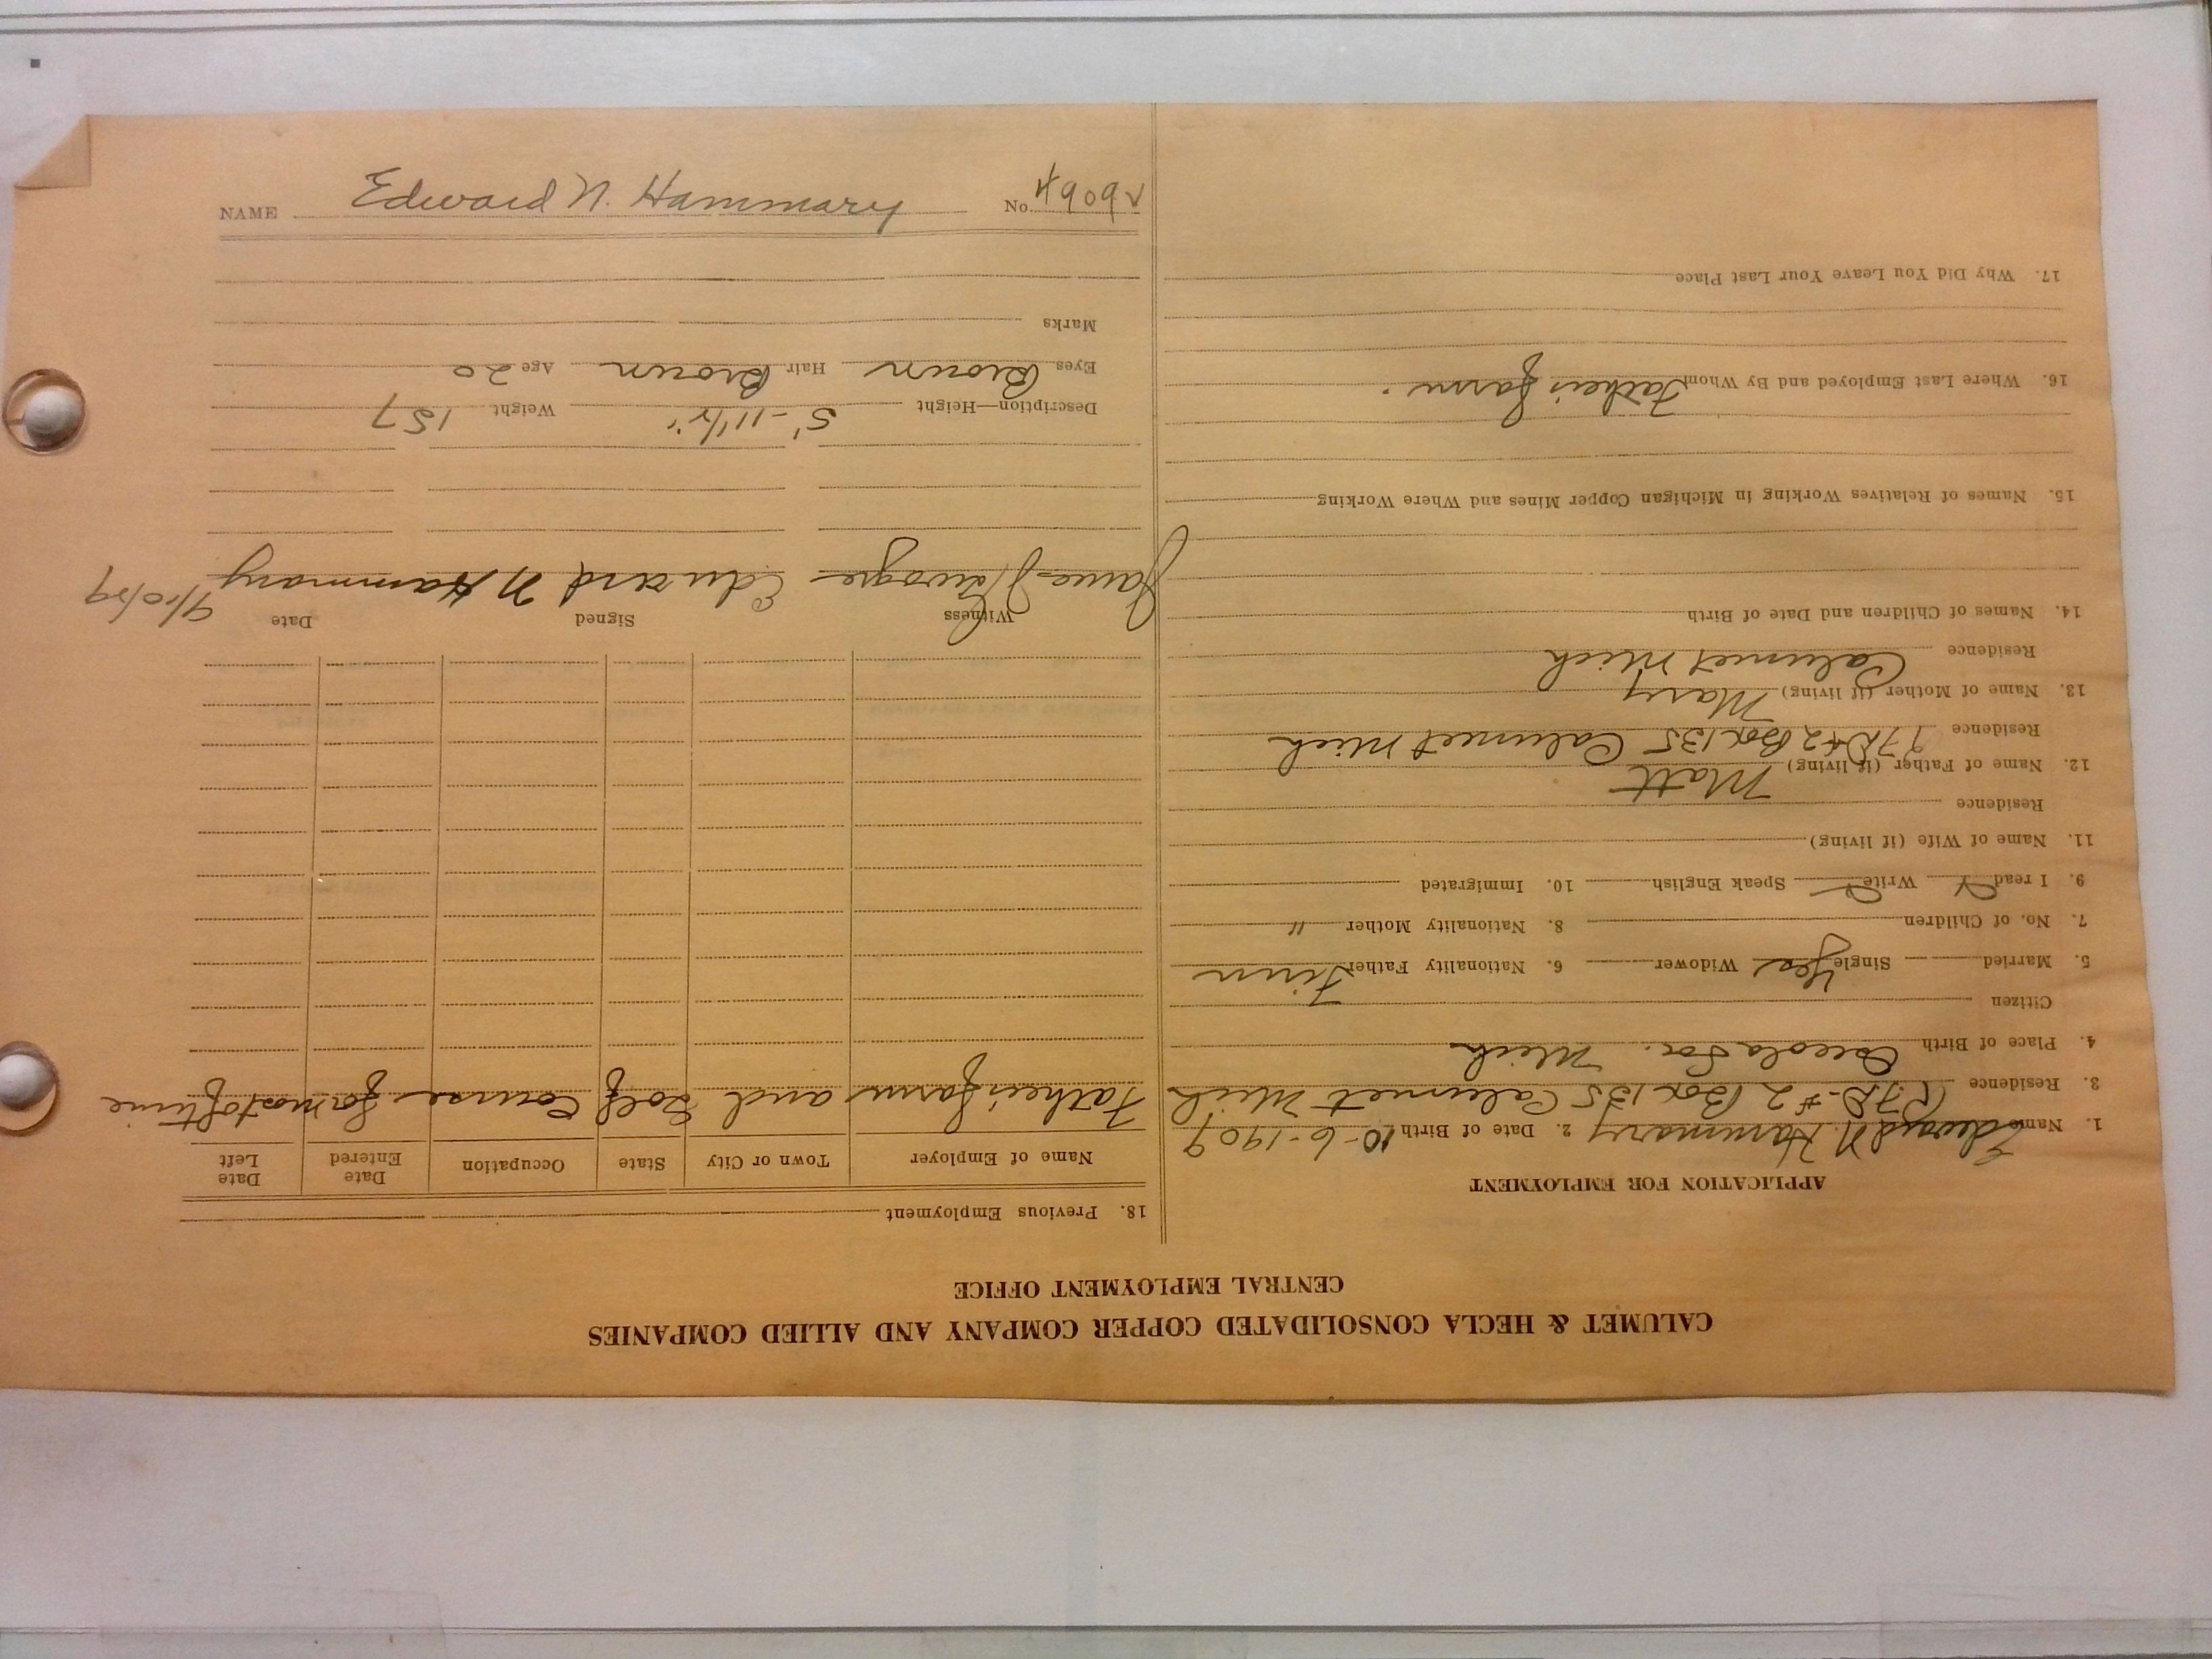 CALUMET & HECLA CONSOLIDATED COPPER COMPANY AND ALLIED COMPANIES
CENTRAL EMPLOYMENT OFFICE
APPLICATION FOR EMPLOYMENT
1. Name Edward N Hammary 2. Date of Birth 10-6-1909
3. Residence R.F.D. #2 Box 135 Calumet Mich
4. Place of Birth Osceola Loc. Mich
Citizen
5. Married Single Yes Widower 6. Nationality Father Finn
7. No. of Children 8. Nationality Mother "
9. I read Write Speak English 10. Immigrated
11. Name of Wife (if living)
Residence
12. Name of Father (if living) Matt
Residence RFD #2 Box 135 Calumet Mich
13. Name of Mother (if living) Mary
Residence Calumet Mich
14. Names of Children and Date of Birth
15. Names of Relatives Working in Michigan Copper Mines and Where Working
16. Where Last Employed and By Whom Father's farm.
17. Why Did You Leave Your Last Place
18. Previous Employment
Name of Employer Town or City State Occupation Date Entered Date Left
Father's farm and Golf Course for most of time
Witness Signed Date
James Edward N Hammary 9/10/29
Description—Height 5'-11 1/2" Weight 157
Eyes Brown Hair Brown Age 20
Marks
NAME Edward N. Hammary No. 49092